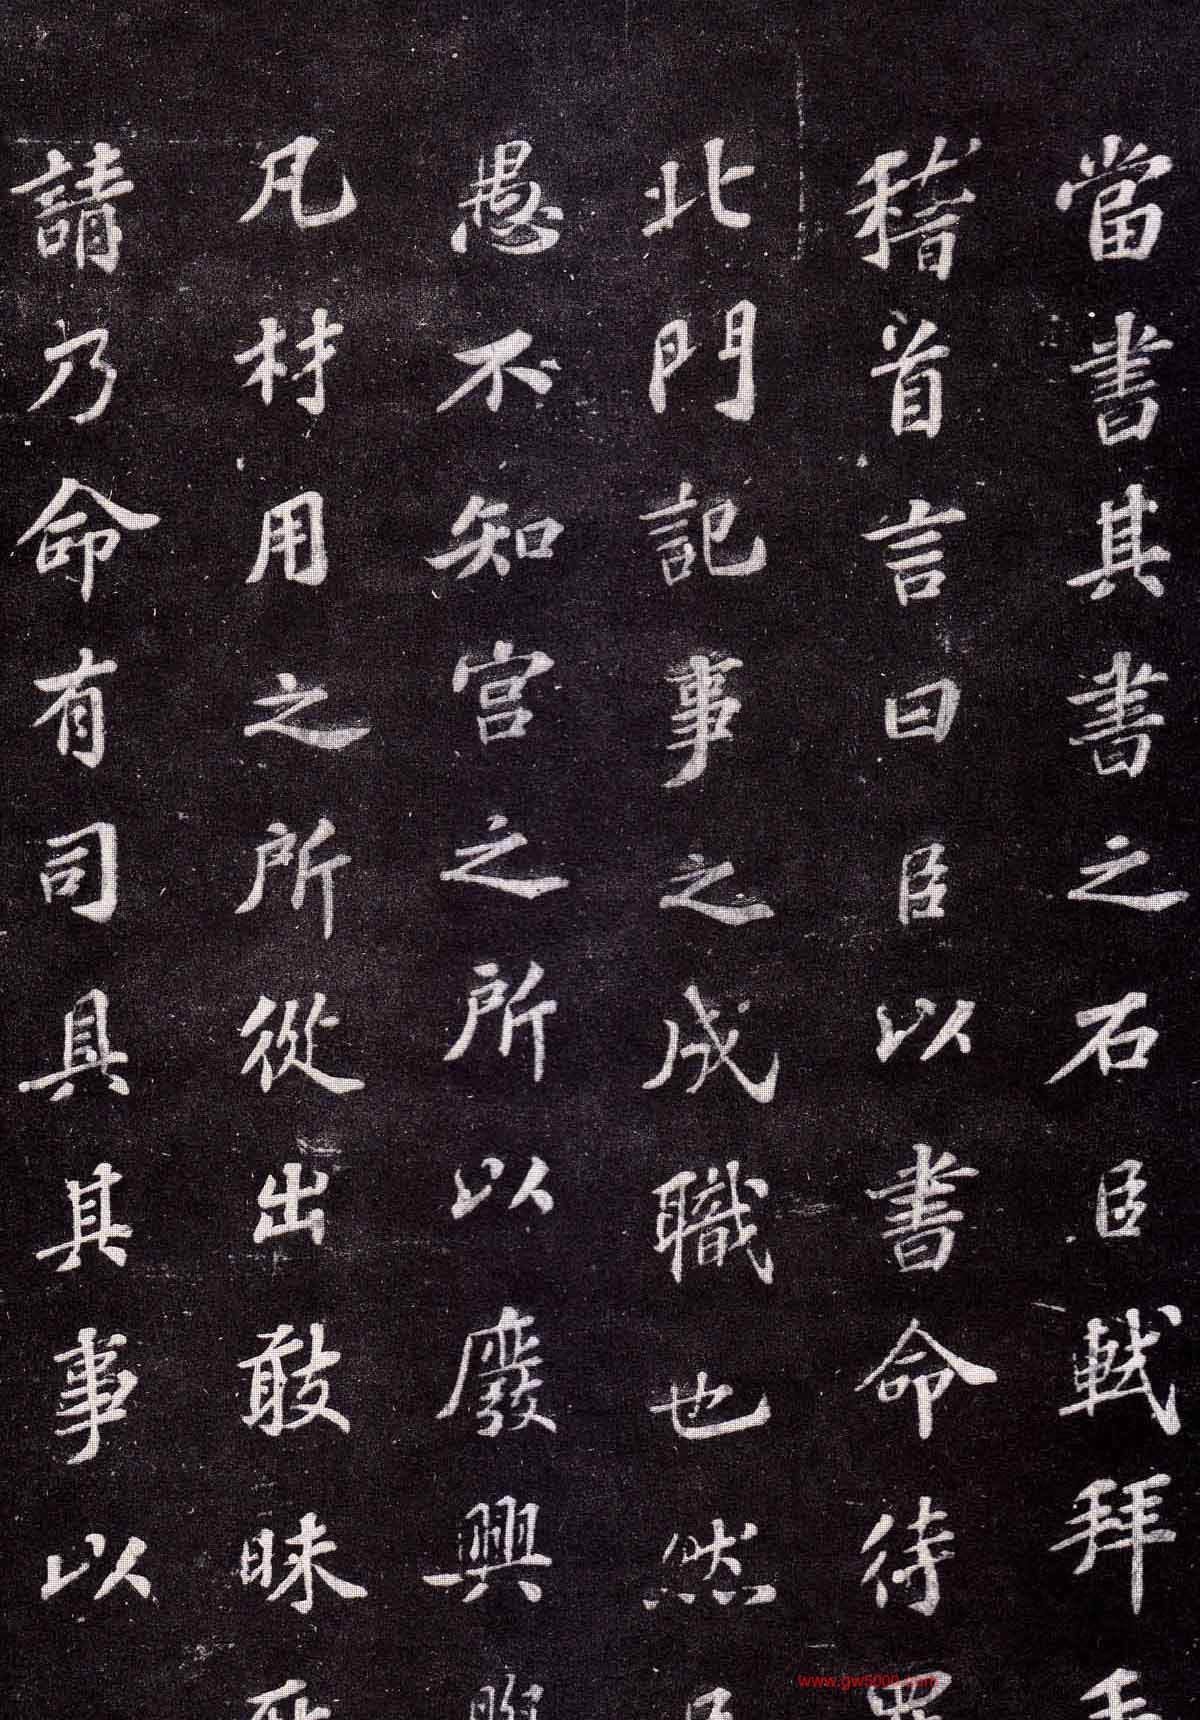 當書其書之石臣軾拜手
稽首言曰臣以書命待罪
北門記事之成職也然臣
愚不知宮之所以廢興與
凡材用之所從出敢昧死
請乃命有司具其事以
www.gw5000.com